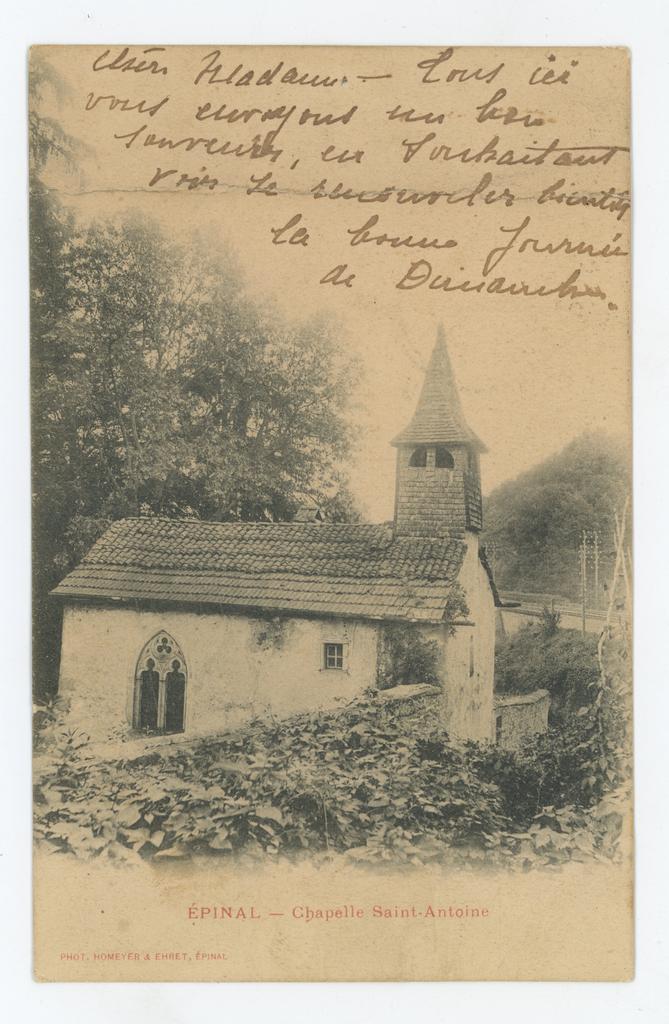 Chère Madame — Tous ici
vous envoyons un bon
souvenir, en souhaitant
voir se renouveler bientôt
la bonne journée
de Dimanche.
ÉPINAL — Chapelle Saint-Antoine
PHOT. HOMEYER & EHRET, ÉPINAL